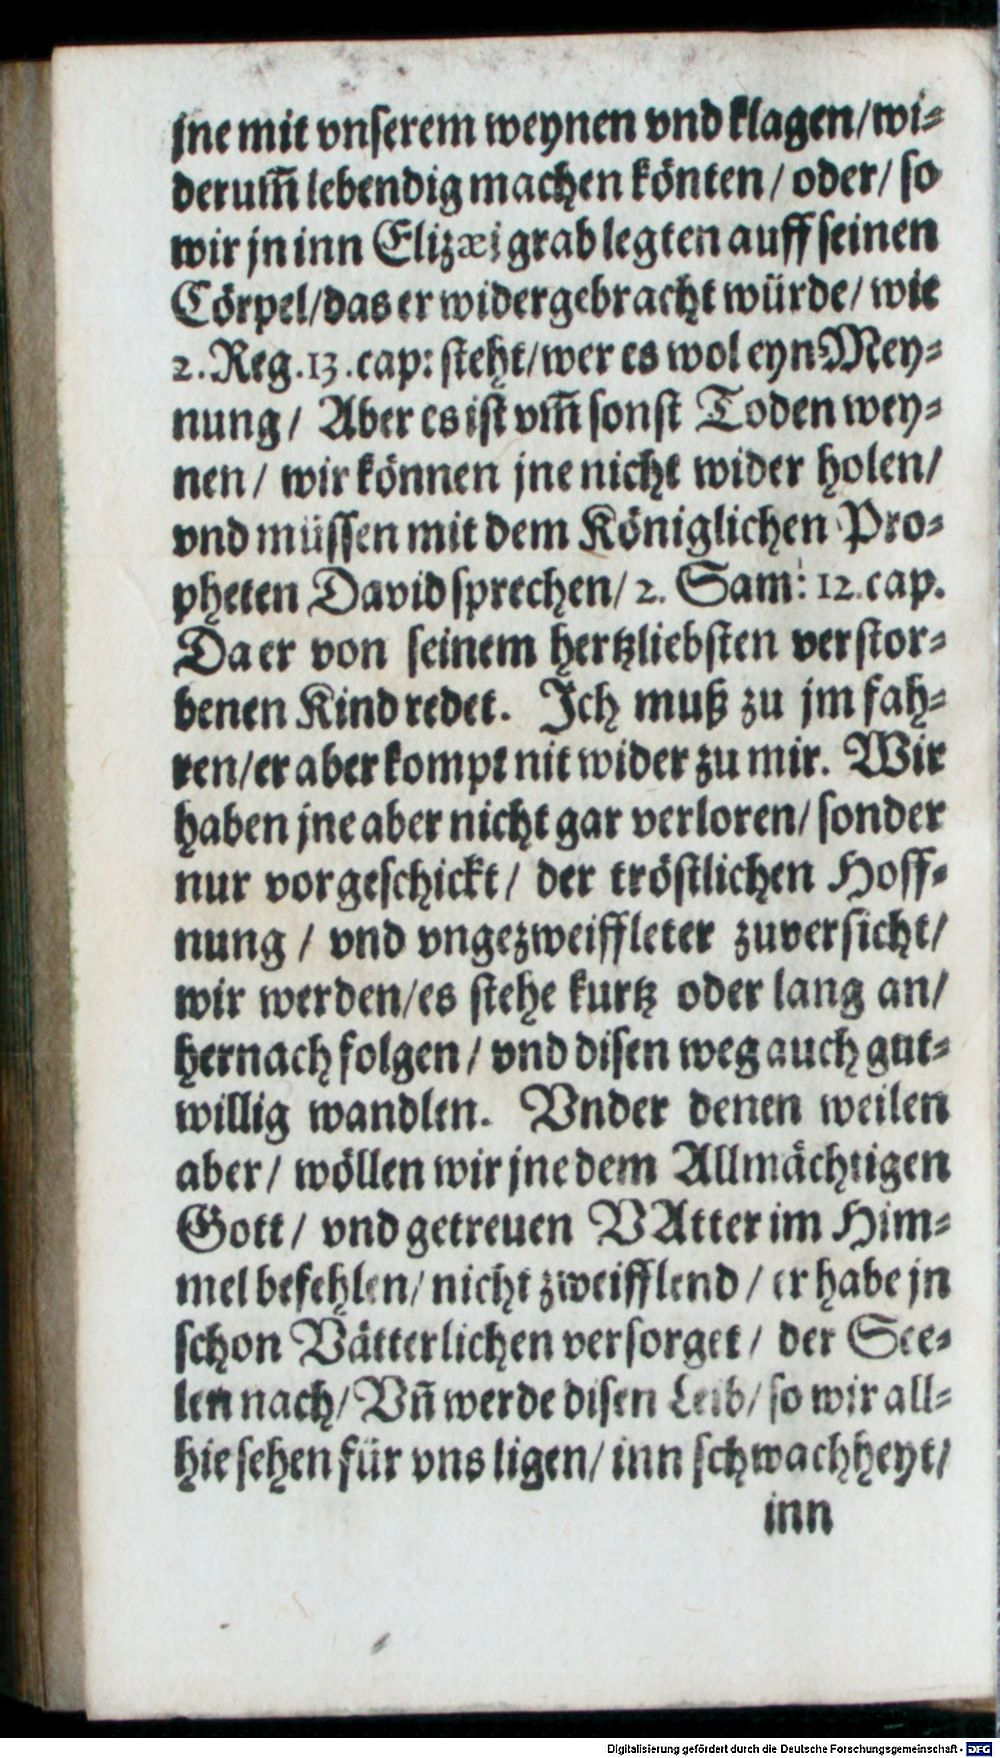 jne mit vnserem weynen vnd klagen/wi⸗
derum̃ lebendig machen könten/ oder/ so
wir jn inn Elizæi grab legten auff seinen
Cörpel/das er widergebracht würde/ wie
2. Reg. 13. cap: steht/wer es wol eyn Mey⸗
nung/ Aber es ist vm̃ sonst Toden wey⸗
nen/ wir können jne nicht wider holen/
vnd müssen mit dem Königlichen Pro⸗
pheten David sprechen/ 2. Sam: 12. cap.
Da er von seinem hertzliebsten verstor⸗
benen Kind redet. Ich muß zu jm fah⸗
ren/er aber kompt nit wider zu mir. Wir
haben jne aber nicht gar verloren/ sonder
nur vorgeschickt/ der tröstlichen Hoff⸗
nung/ vnd vngezweiffleter zuversicht/
wir werden/es stehe kurtz oder lang an/
hernach folgen/ vnd disen weg auch gut⸗
willig wandlen. Vnder denen weilen
aber/ wöllen wir jne dem Allmächtigen
Gott/ vnd getreuen VAtter im Him⸗
mel befehlen/ nicht zweifflend/ er habe jn
schon Vätterlichen versorget/ der See⸗
len nach/ Vñ werde disen Leib/ so wir all⸗
hie sehen für vns ligen/ inn schwachheyt/
inn
Digitalisierung gefördert durch die Deutsche Forschungsgemeinschaft - DFG